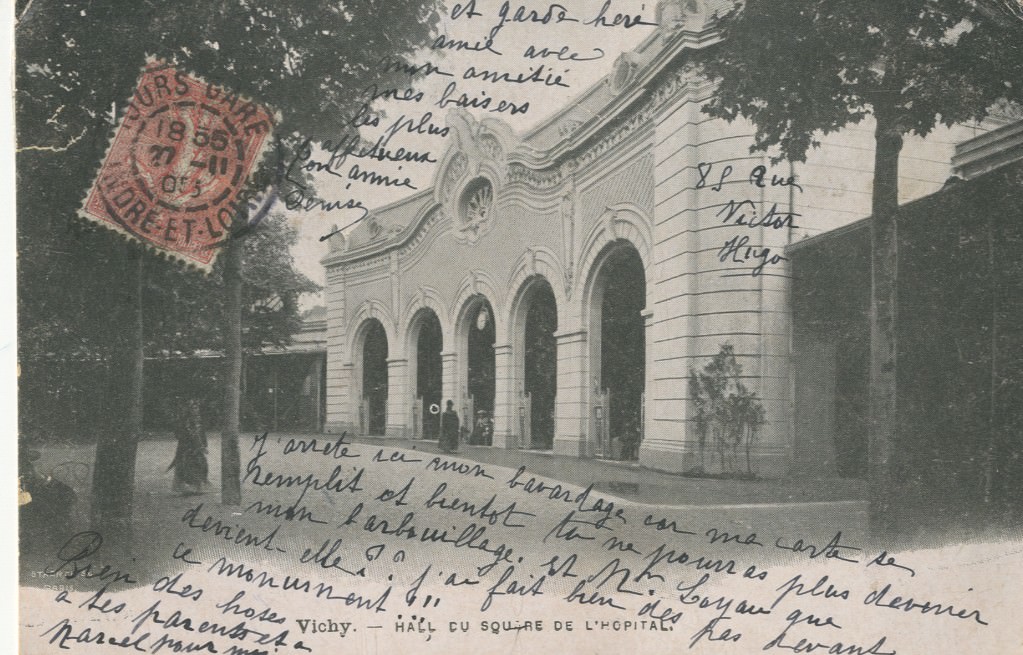 et garde chéré
amie avec
mon amitié
mes baisers
les plus
affectueux
Ton amie
Denise
TOURS GARE
18 55
27 -11
05
INDRE-ET-LOIRE
85 Rue
Victor
Hugo
J'arrete ici mon bavardage car ma carte se
remplit et bientot tu ne pourras plus devenir
mon barbouillage. et Mr Loyau que
devient-elle?? j'ai fait bien des pas devant
ce monument!!!
Bien des choses
a tes parents et a
Marcel pour moi
PARIS
Vichy. — HALL DU SQUARE DE L'HOPITAL.